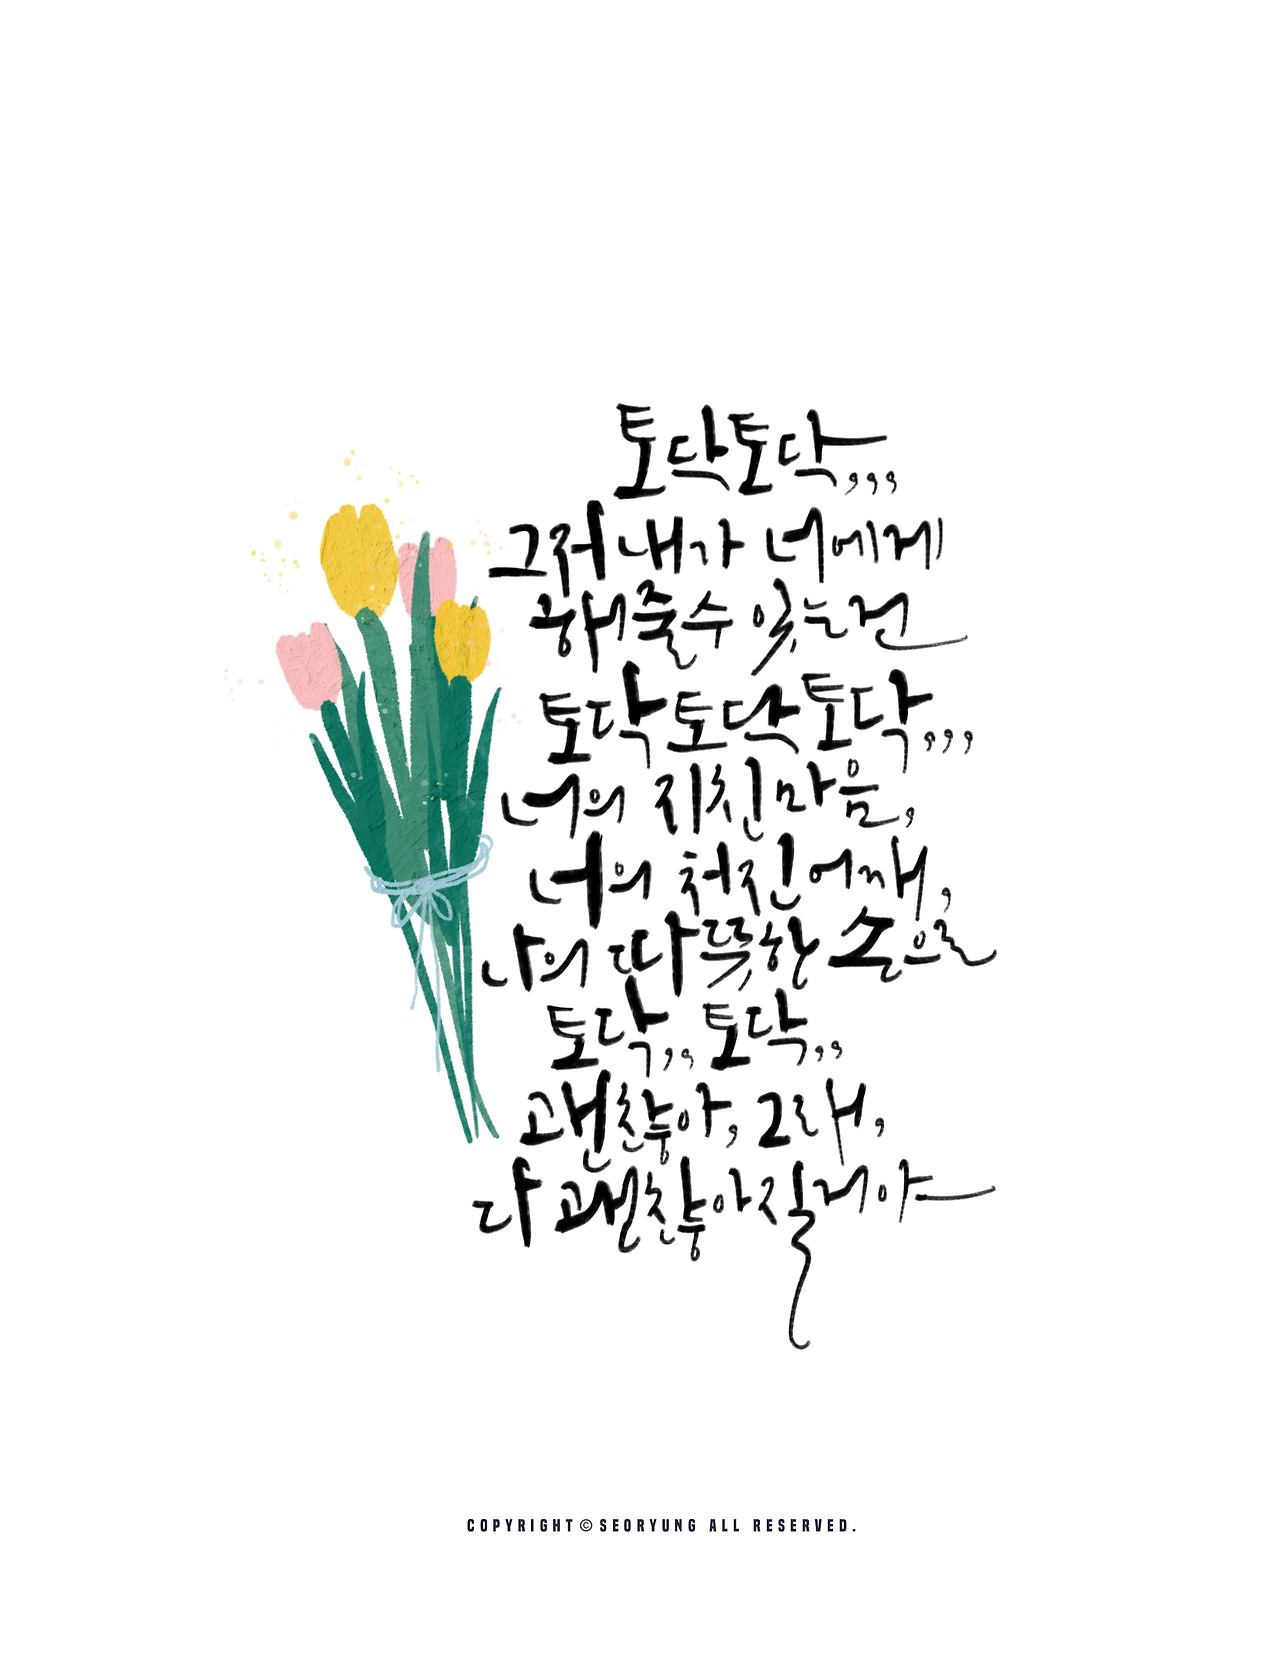 토닥토닥,,,
그저 내가 너에게
해줄수 있는건
토닥토닥토닥,,,
너의 지친마음,
너의 처진어깨,
나의 따뜻한 손으로
토닥,,, 토닥,,,
괜찮아, 그래,
다 괜찮아질거야
COPYRIGHT©SEORYUNG ALL RESERVED.